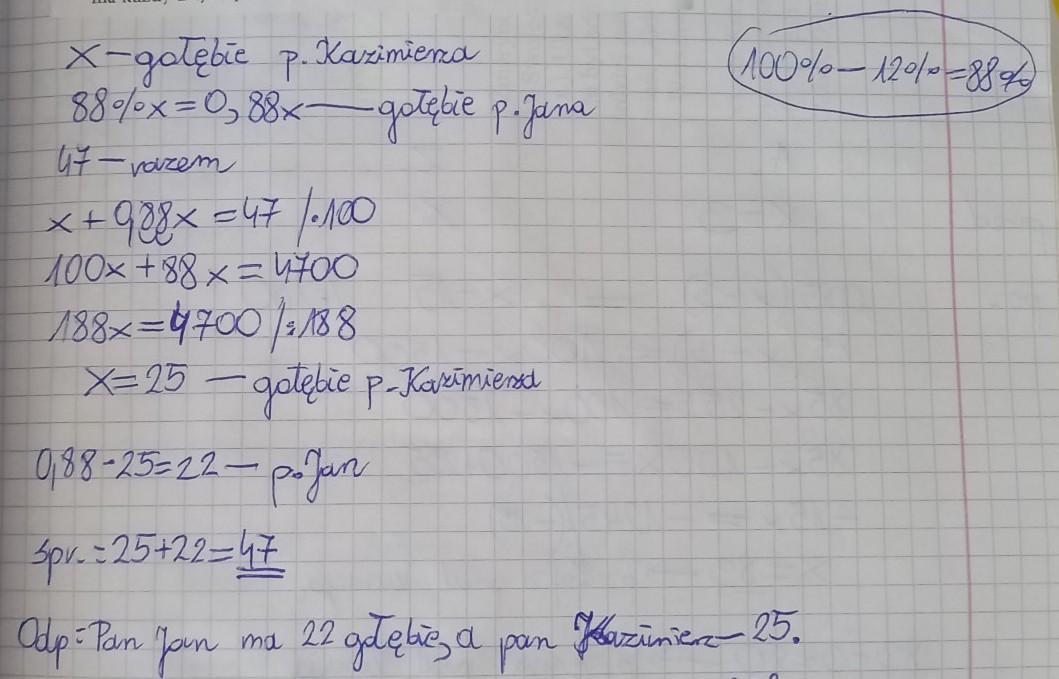 x – gołębie p. Kazimierza
100% – 12% = 88%
88% x = 0,88x — gołębie p. Jana
47 – razem
x + 0,88x = 47 /·100
100x + 88x = 4700
188x = 4700 /:188
x = 25 – gołębie p. Kazimierza
0,88 · 25 = 22 – p. Jan
Spr. = 25 + 22 = 47
Odp: Pan Jan ma 22 gołębie, a pan Kazimierz – 25.